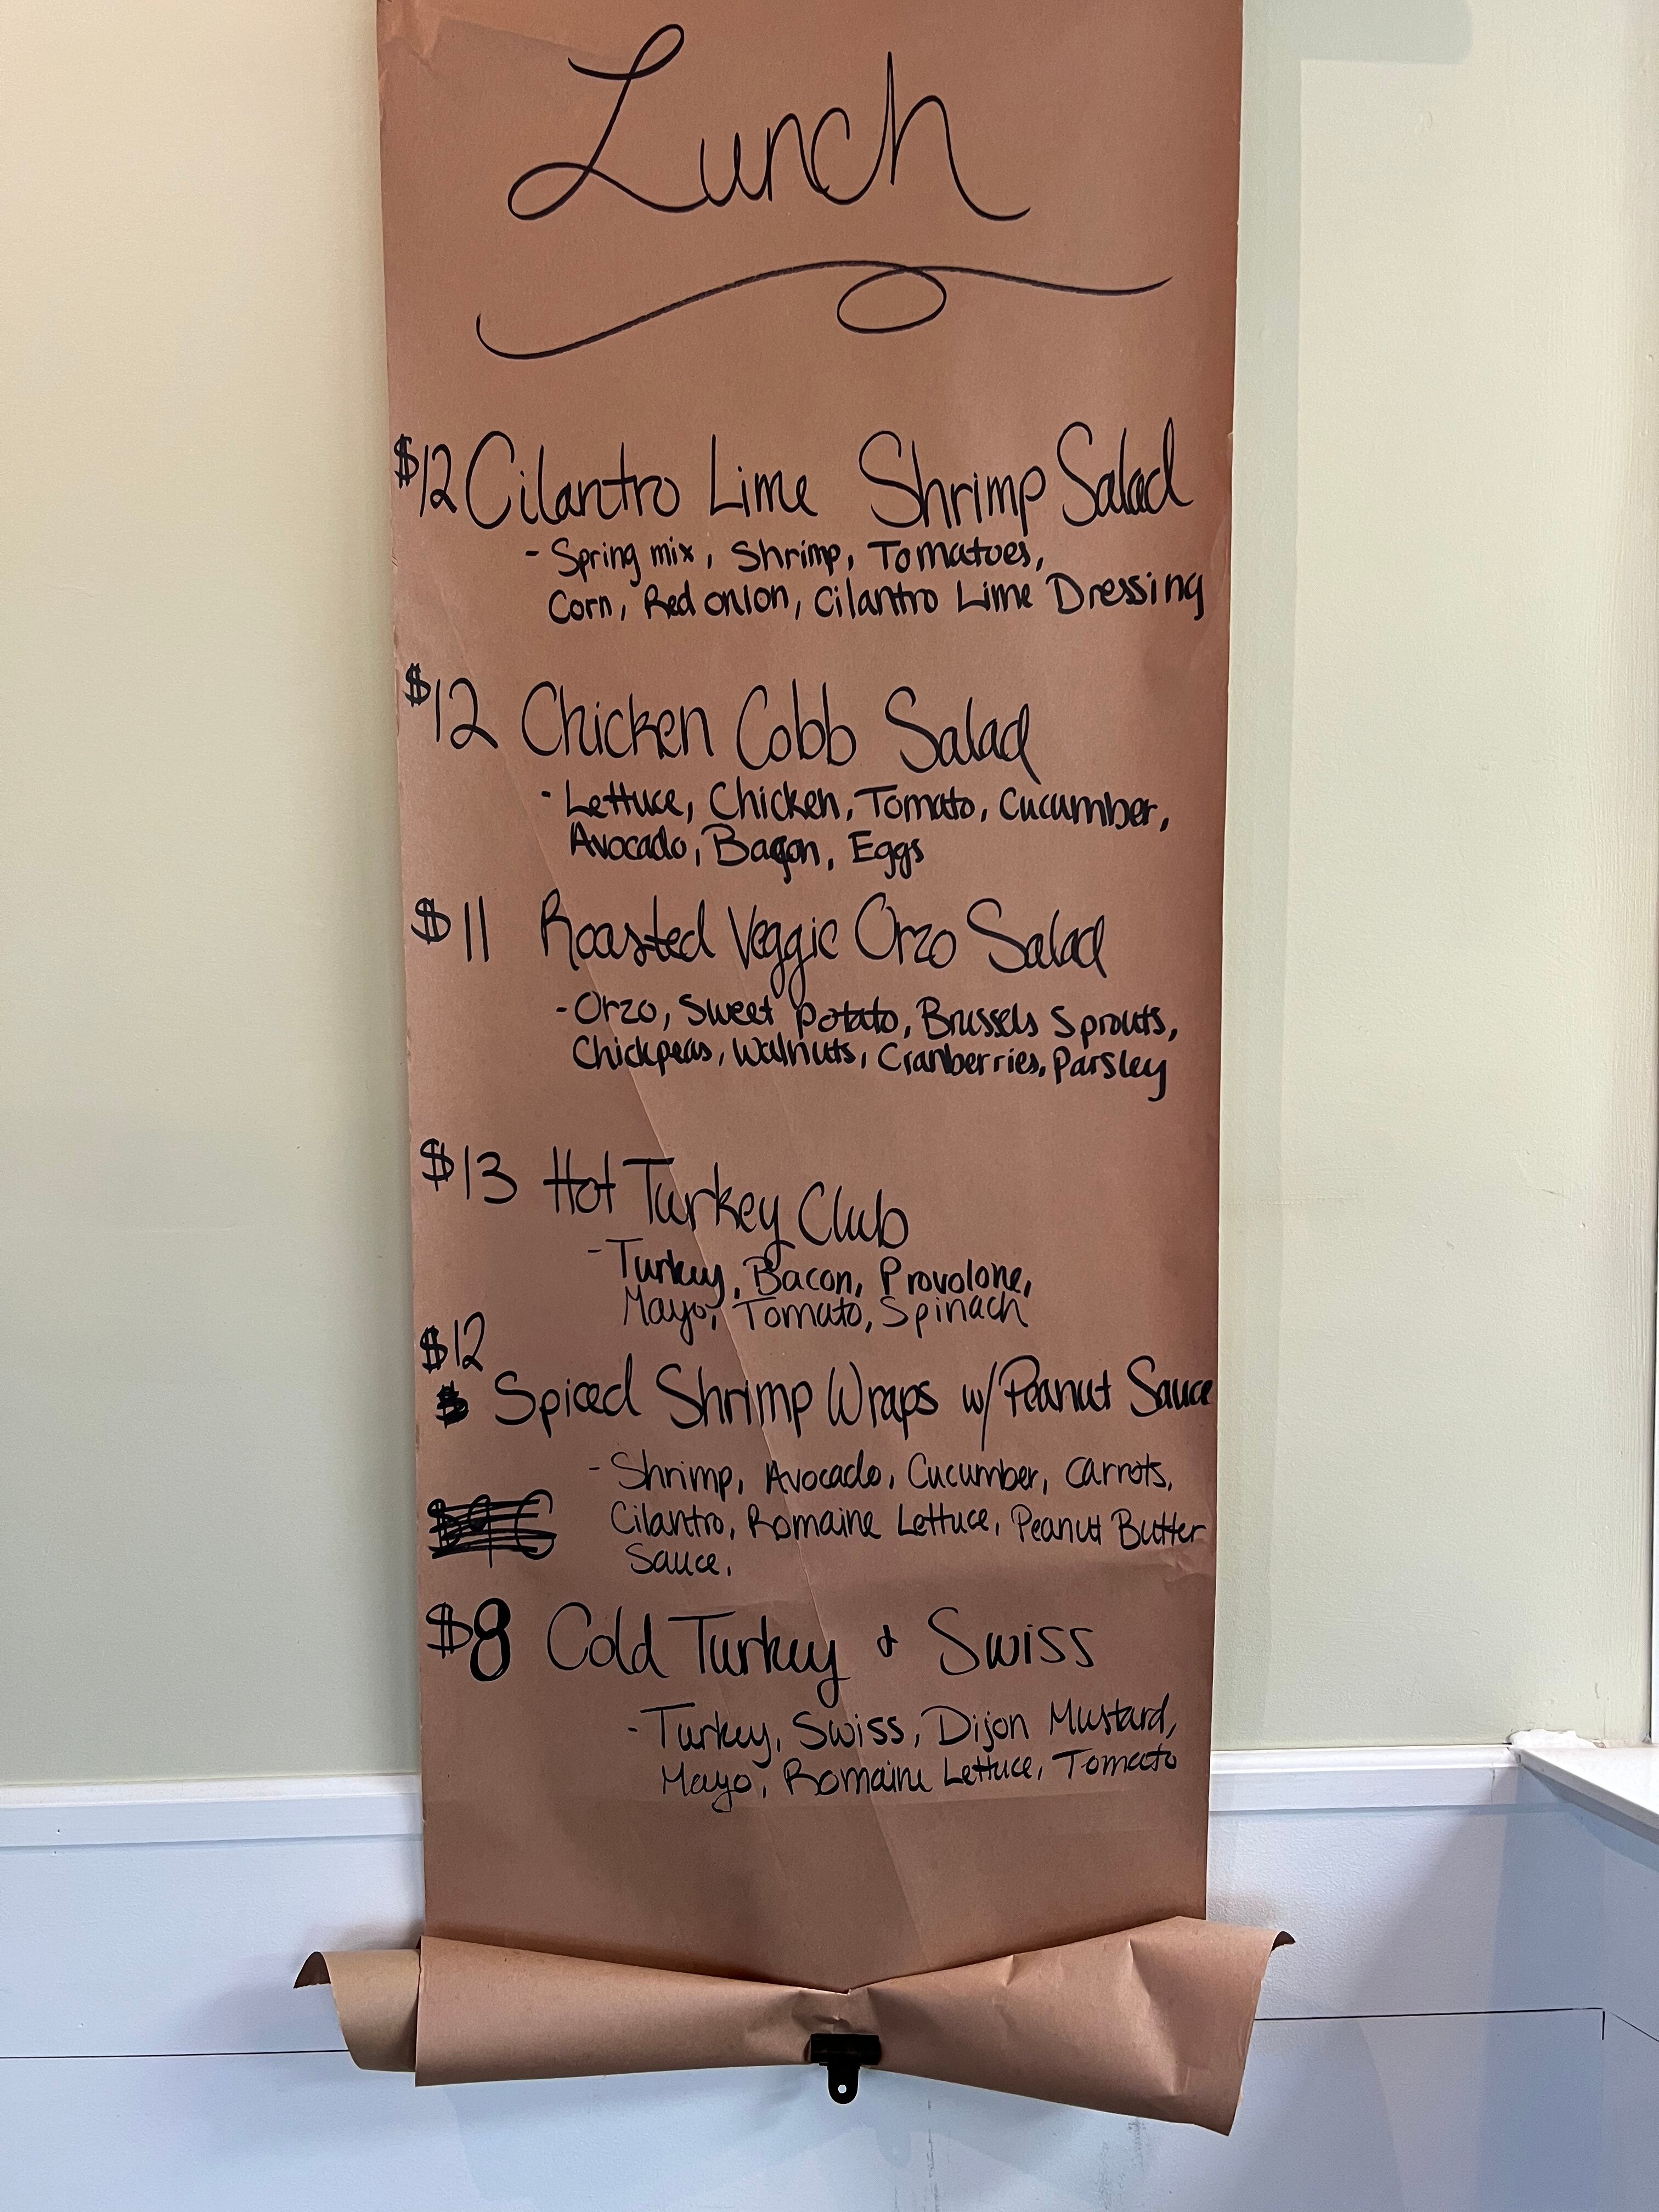 Lunch
$12 Cilantro Lime Shrimp Salad
- Spring mix, Shrimp, Tomatoes,
Corn, Red onion, Cilantro Lime Dressing
$12 Chicken Cobb Salad
- Lettuce, Chicken, Tomato, Cucumber,
Avocado, Bacon, Eggs
$11 Roasted Veggie Orzo Salad
- Orzo, Sweet potato, Brussels Sprouts,
Chickpeas, Walnuts, Cranberries, Parsley
$13 Hot Turkey Club
- Turkey, Bacon, Provolone,
Mayo, Tomato, Spinach
$12
$ Spiced Shrimp Wraps w/ Peanut Sauce
- Shrimp, Avocado, Cucumber, Carrots,
Cilantro, Romaine Lettuce, Peanut Butter
Sauce,
$8 Cold Turkey & Swiss
- Turkey, Swiss, Dijon Mustard,
Mayo, Romaine Lettuce, Tomato